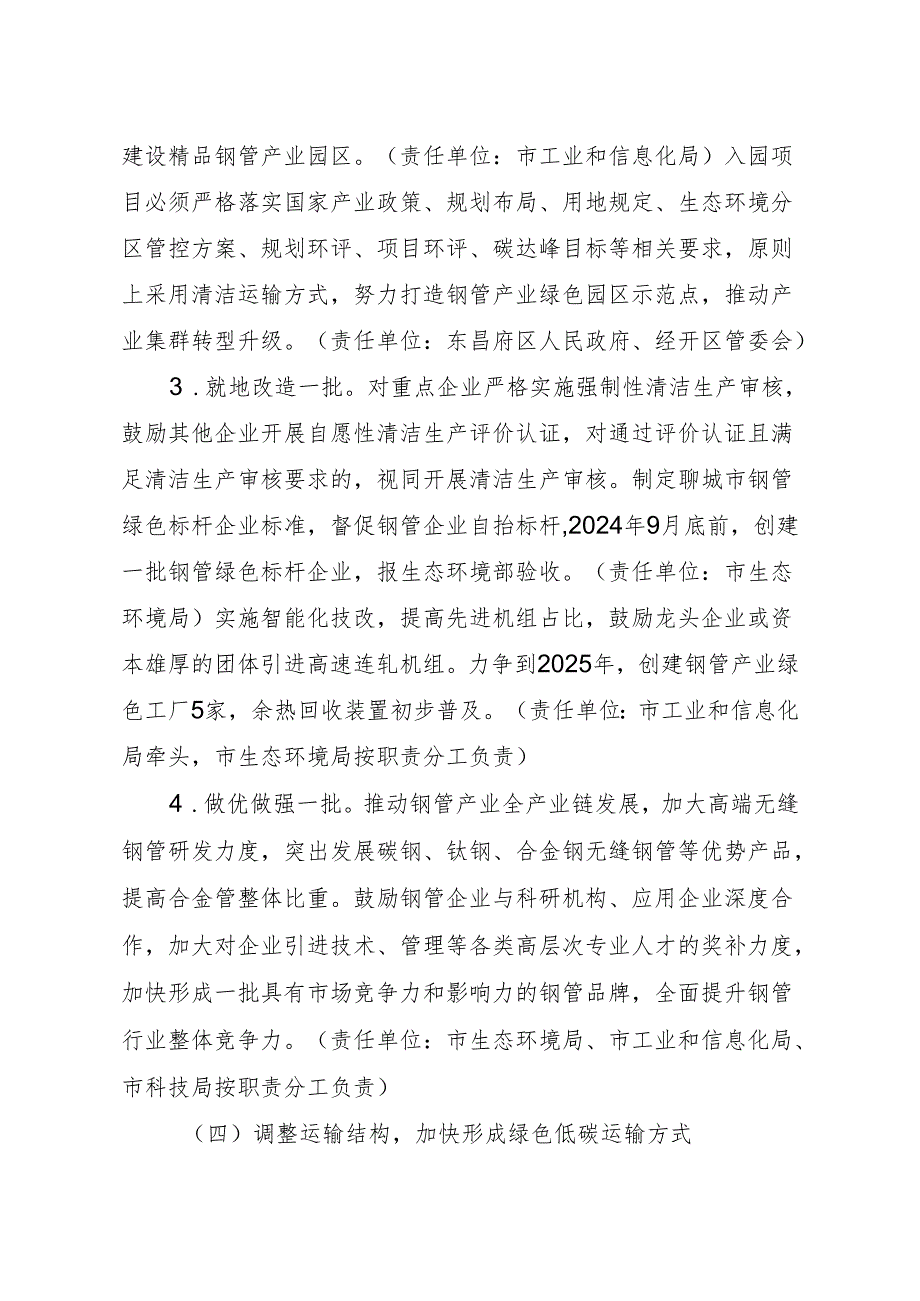 建设精品钢管产业园区。（责任单位：市工业和信息化局）入园项
目必须严格落实国家产业政策、规划布局、用地规定、生态环境分
区管控方案、规划环评、项目环评、碳达峰目标等相关要求，原则
上采用清洁运输方式，努力打造钢管产业绿色园区示范点，推动产
业集群转型升级。（责任单位：东昌府区人民政府、经开区管委会）
3 .就地改造一批。对重点企业严格实施强制性清洁生产审核，
鼓励其他企业开展自愿性清洁生产评价认证，对通过评价认证且满
足清洁生产审核要求的，视同开展清洁生产审核。制定聊城市钢管
绿色标杆企业标准，督促钢管企业自抬标杆,2024年9月底前，创建
一批钢管绿色标杆企业，报生态环境部验收。（责任单位：市生态
环境局）实施智能化技改，提高先进机组占比，鼓励龙头企业或资
本雄厚的团体引进高速连轧机组。力争到2025年，创建钢管产业绿
色工厂5家，余热回收装置初步普及。（责任单位：市工业和信息化
局牵头，市生态环境局按职责分工负责）
4 .做优做强一批。推动钢管产业全产业链发展，加大高端无缝
钢管研发力度，突出发展碳钢、钛钢、合金钢无缝钢管等优势产品，
提高合金管整体比重。鼓励钢管企业与科研机构、应用企业深度合
作，加大对企业引进技术、管理等各类高层次专业人才的奖补力度，
加快形成一批具有市场竞争力和影响力的钢管品牌，全面提升钢管
行业整体竞争力。（责任单位：市生态环境局、市工业和信息化局、
市科技局按职责分工负责）
（四）调整运输结构，加快形成绿色低碳运输方式